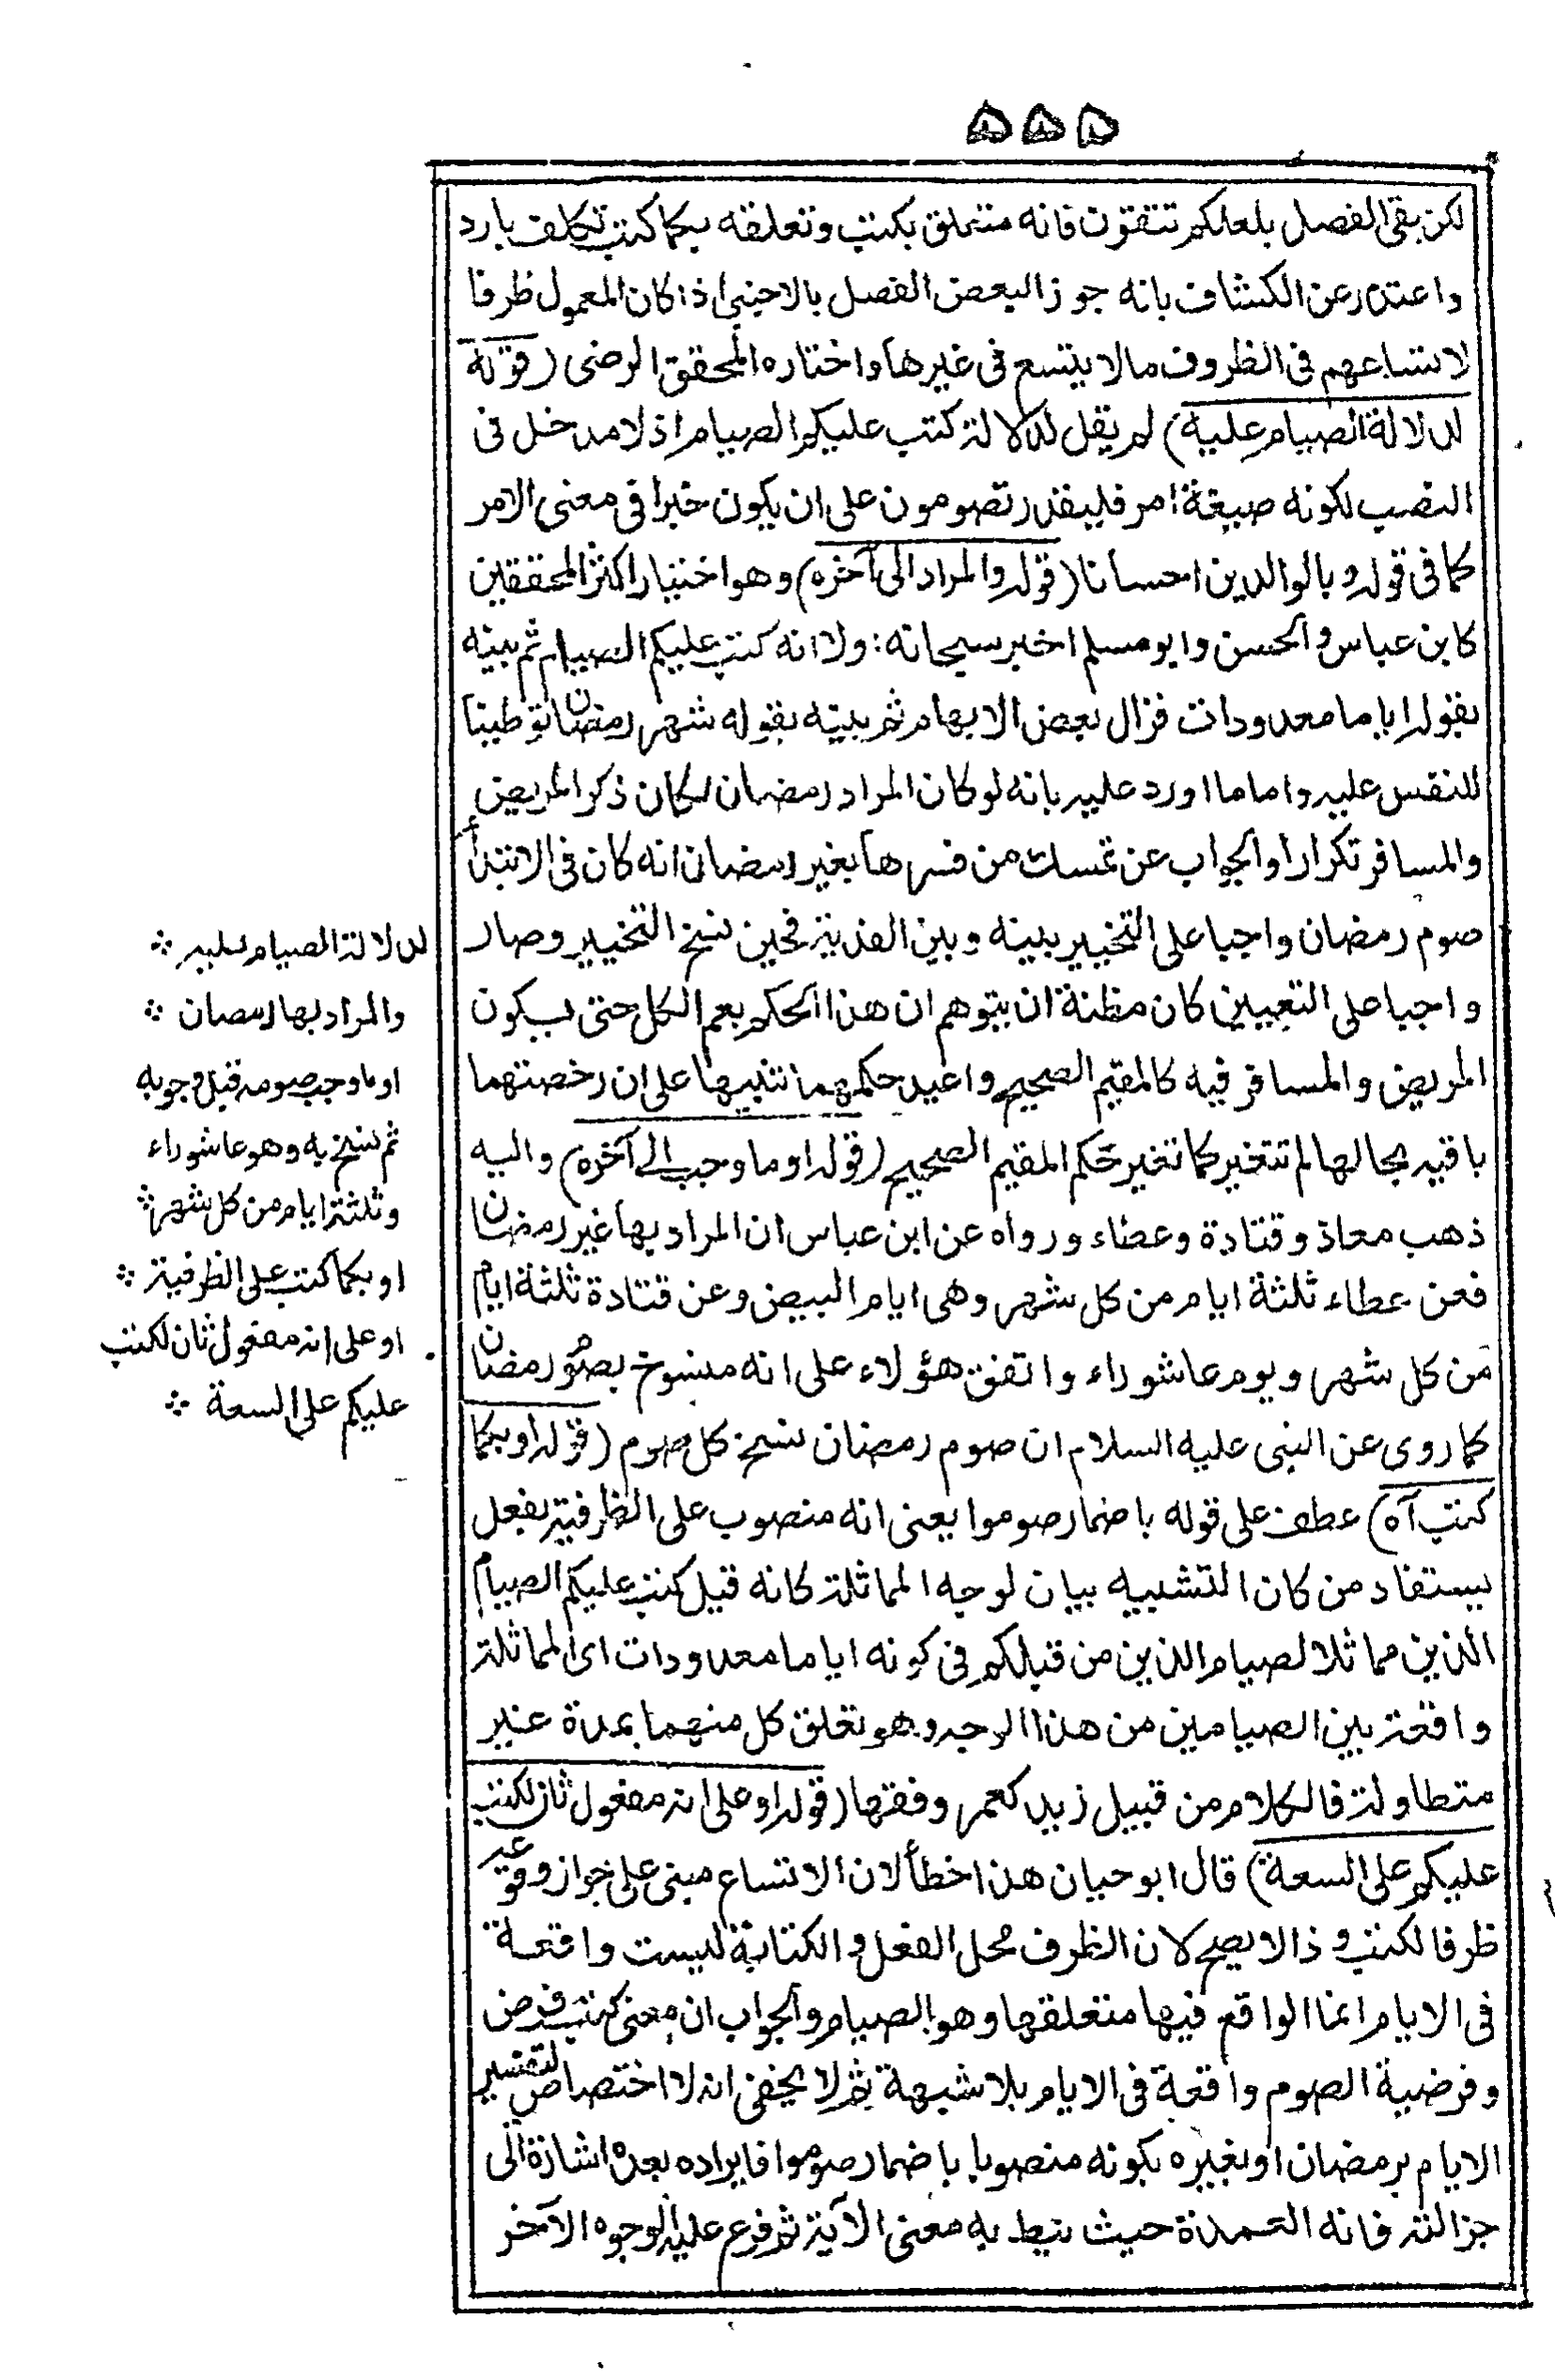 ٥٥٥
لكن بقى الفصل بلعلكم تتقون فانه متعلق بكتب وتعلقه بكما كتب تكلف بارد
واعتذر عن الكشاف بانه جوز البعض الفصل بالاجنبى اذا كان المعمول ظرفا
لاتساعهم فى الظروف مالا يتسع فى غيرها واختاره المحقق الرضى (قوله
لدلالة الصيام عليه) لم يقل لدلالة كتب عليكم الصيام اذ لا مدخل فى
النصب لكونه صيغة امر فليقدر تصومون على ان يكون خبرا فى معنى الامر
كما فى قوله وبالوالدين احسانا (قوله والمراد الى آخره) وهو اختيار اكثر المحققين
كابن عباس والحسن وابو مسلم اخبر سبحانه اولا انه كتب عليكم الصيام ثم بينه
بقوله اياما معدودات فزال بعض الابهام ثم بينه بقوله شهر رمضان توطينا
للنفس عليه واما ما اورد عليه بانه لو كان المراد رمضان لكان ذكر المريض
والمسافر تكرارا والجواب عن تمسك من فسرها بغير رمضان انه كان فى الابتداء
صوم رمضان واجبا على التخيير بينه وبين الفدية فحين نسخ التخيير وصار
واجبا على التعيين كان مظنة ان يتوهم ان هذا الحكم يعم الكل حتى يكون
المريض والمسافر فيه كالمقيم الصحيح واعيد حكمهما تنبيها على ان رخصتهما
باقيه بحالها لم تتغير كما تغير حكم المقيم الصحيح (قوله او ما وجب الى آخره) واليه
ذهب معاذ وقتادة وعطاء ورواه عن ابن عباس ان المراد بها غير رمضان
فعن عطاء ثلثة ايام من كل شهر وهى ايام البيض وعن قتادة ثلثة ايام
من كل شهر ويوم عاشوراء واتفق هؤلاء على انه منسوخ بصوم رمضان
كما روى عن النبى عليه السلام ان صوم رمضان نسخ كل صوم (قوله او بكما
كتب آه) عطف على قوله باضمار صوموا يعنى انه منصوب على الظرفية بفعل
يستفاد من كان التشبيه بيان لوجه المماثلة كانه قيل كتب عليكم الصيام
الذين مماثلا لصيام الذين من قبلكم فى كونه اياما معدودات اى المماثلة
واقعة بين الصيامين من هذا الوجه وهو تعلق كل منهما بمدة غير
متطاولة فالكلام من قبيل زيد كعمرو فقها (قوله او على انه مفعول ثان لكتب
عليكم على السعة) قال ابو حيان هذا خطأ لان الاتساع مبنى على جواز وقوعه
ظرفا لكتب وذا لا يصح لان الظرف محل الفعل والكتابة ليست واقعة
فى الايام انما الواقع فيها متعلقها وهو الصيام والجواب ان معنى كتب فرض
وفرضية الصوم واقعة فى الايام بلا شبهة ثم لا يخفى انه لا اختصاص لتفسير
الايام برمضان او بغيره بكونه منصوبا باضمار صوموا فايراده بعده اشارة الى
جزالته فانه العمدة حيث نيط به معنى الآية ثم فرع عليه الوجوه الآخر
لدلالة الصيام عليه
والمراد بها رمضان
او ما وجب صومه قبل وجوبه
ثم نسخ به وهو عاشوراء
وثلثة ايام من كل شهر
او بكما كتب على الظرفية
او على انه مفعول ثان لكتب
عليكم على السعة